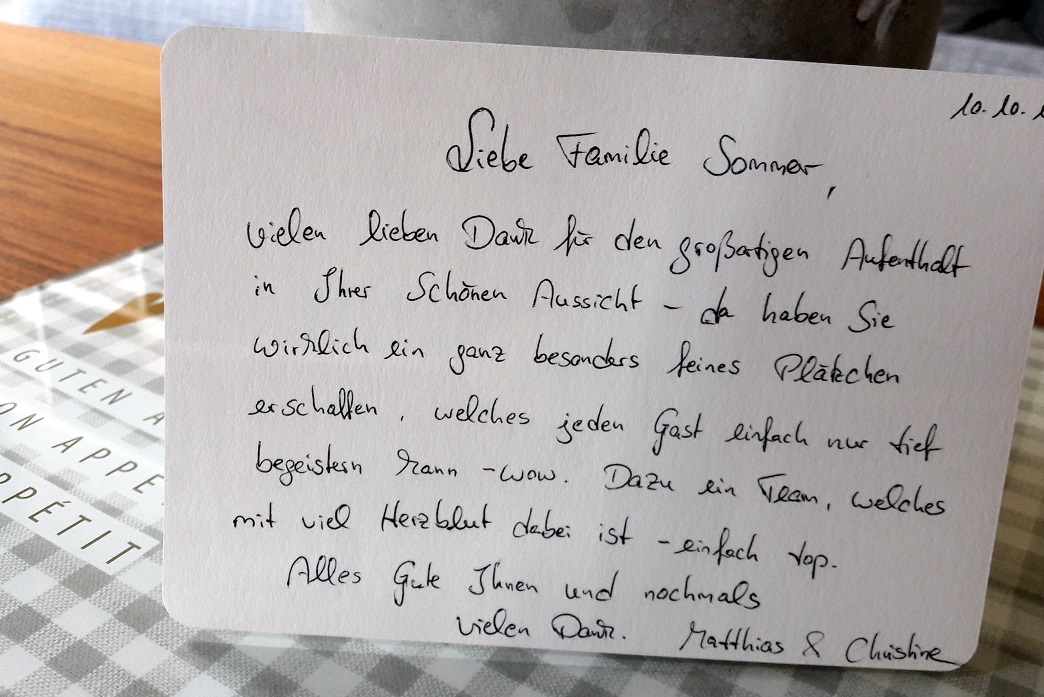 10. 10.
Liebe Familie Sommer,
vielen lieben Dank für den großartigen Aufenthalt
in Ihrer Schönen Aussicht - da haben Sie
wirklich ein ganz besonders feines Plätzchen
erschaffen, welches jeden Gast einfach nur tief
begeistern kann - wow. Dazu ein Team, welches
mit viel Herzblut dabei ist - einfach top.
Alles Gute Ihnen und nochmals
vielen Dank. Matthias & Christine
GUTEN A
ON APPE
PPÉTIT